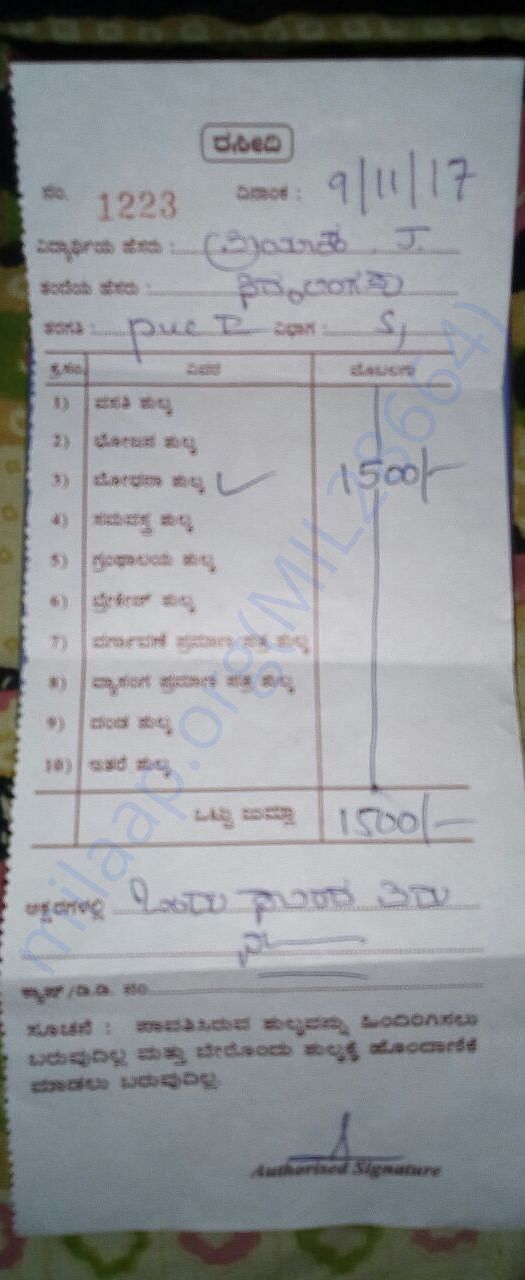 ರಸೀದಿ
ನಂ. 1223 ದಿನಾಂಕ : 9/11/17
ವಿದ್ಯಾರ್ಥಿಯ ಹೆಸರು : J.
ತಂದೆಯ ಹೆಸರು :
ತರಗತಿ : PUC ವಿಭಾಗ : S,
ಕ್ರ.ಸಂ. ವಿವರ ಮೊಬಲಗು
1) ವಸತಿ ಶುಲ್ಕ
2) ಭೋಜನ ಶುಲ್ಕ
3) ಬೋಧನಾ ಶುಲ್ಕ ✓ 1500/-
4) ಸಮವಸ್ತ್ರ ಶುಲ್ಕ
5) ಗ್ರಂಥಾಲಯ ಶುಲ್ಕ
6) ಬ್ರೇಕೇಜ್ ಶುಲ್ಕ
7) ವರ್ಗಾವಣೆ ಪ್ರಮಾಣ ಪತ್ರ ಶುಲ್ಕ
8) ವ್ಯಾಸಂಗ ಪ್ರಮಾಣ ಪತ್ರ ಶುಲ್ಕ
9) ದಂಡ ಶುಲ್ಕ
10) ಇತರೆ ಶುಲ್ಕ
ಒಟ್ಟು ಮೊತ್ತ 1500/-
ಅಕ್ಷರಗಳಲ್ಲಿ ಒಂದು ಸಾವಿರದ ಐದು
ಕ್ಯಾಷ್/ಡಿ.ಡಿ. ನಂ.
ಸೂಚನೆ : ಪಾವತಿಸಿರುವ ಶುಲ್ಕವನ್ನು ಹಿಂದಿರಿಗಿಸಲು
ಬರುವುದಿಲ್ಲ ಮತ್ತು ಬೇರೊಂದು ಶುಲ್ಕಕ್ಕೆ ಹೊಂದಾಣಿಕೆ
ಮಾಡಲು ಬರುವುದಿಲ್ಲ.
Authorised Signature
milaap.org(MIL28664)